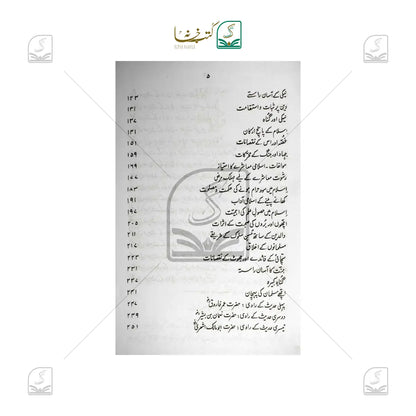 کتب خانہ
۵
نیکی کے آسان راستے ۱۲۳
دین پر ثبات و استقامت ۱۳۱
نیکی اور گناہ ۱۳۷
اسلام کے پانچ ارکان ۱۴۱
غصہ اور اس کے نقصانات ۱۵۱
جہاد اور جنگ کے محرکات ۱۵۹
مواخات ۔ اسلامی معاشرے کا امتیاز ۱۶۹
رشوت معاشرے کے لیے مہلک مرض ۱۷۷
اسلام میں سود حرام ہونے کی حکمت و مصلحت ۱۸۳
کھانے پینے کے اسلامی آداب ۱۹۱
اسلام میں حصول علم کی اہمیت ۱۹۷
اچھوں اور بُروں کی صحبت کے اثرات ۲۰۵
والدین کے ساتھ حسن سلوک کے طریقے ۲۱۱
مسلمانوں کے اخلاق ۲۱۷
سچائی کے فائدے اور جھوٹ کے نقصانات ۲۲۳
جنت کا آسان راستہ ۲۲۷
گناہ کبیرہ ۲۳۱
اچھے مسلمان کی پہچان
پہلی حدیث کے راوی : حضرت عمر فاروقؓ ۲۳۷
دوسری حدیث کے راوی : حضرت نعمان بن بشیرؓ ۲۳۹
تیسری حدیث کے راوی : حضرت ابو مالک اشعریؓ ۲۵۱